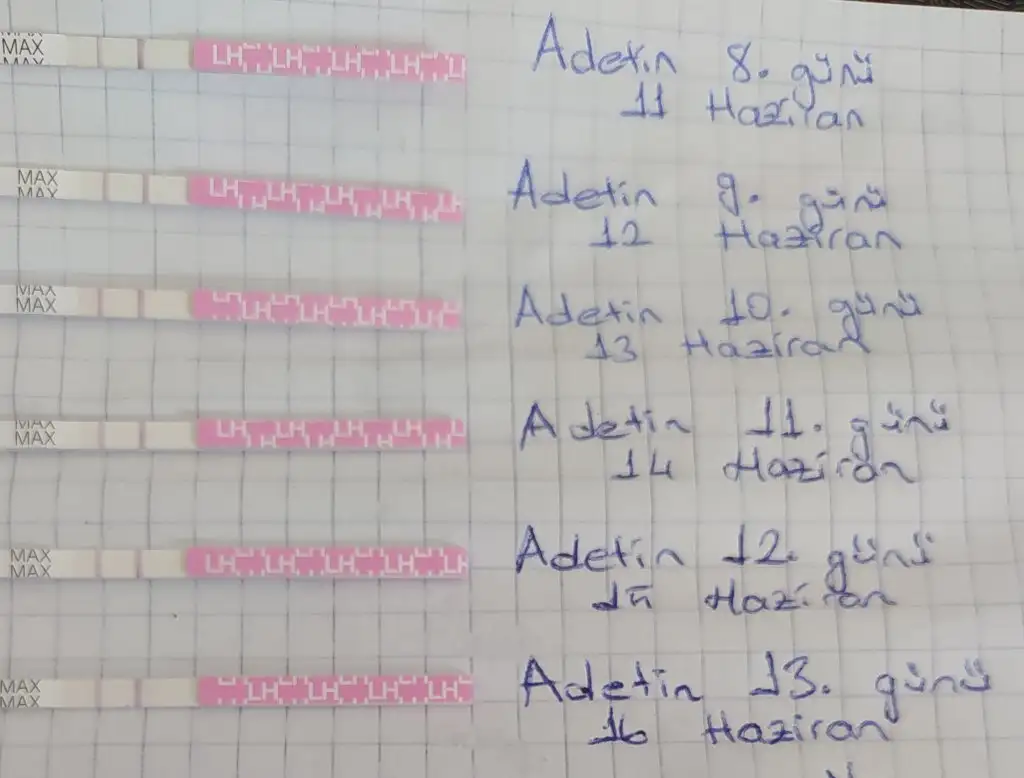 MAX
MAX
LH LH LH LH L
Adetin 8. günü
11 Haziran
MAX
MAX
LH LH LH LH
Adetin 9. günü
12 Haziran
MAX
MAX
LH LH LH LH
Adetin 10. günü
13 Haziran
MAX
MAX
LH LH LH LH
Adetin 11. günü
14 Haziran
MAX
MAX
LH LH LH LH LH
Adetin 12. günü
15 Haziran
MAX
MAX
LH LH LH LH
Adetin 13. günü
16 Haziran